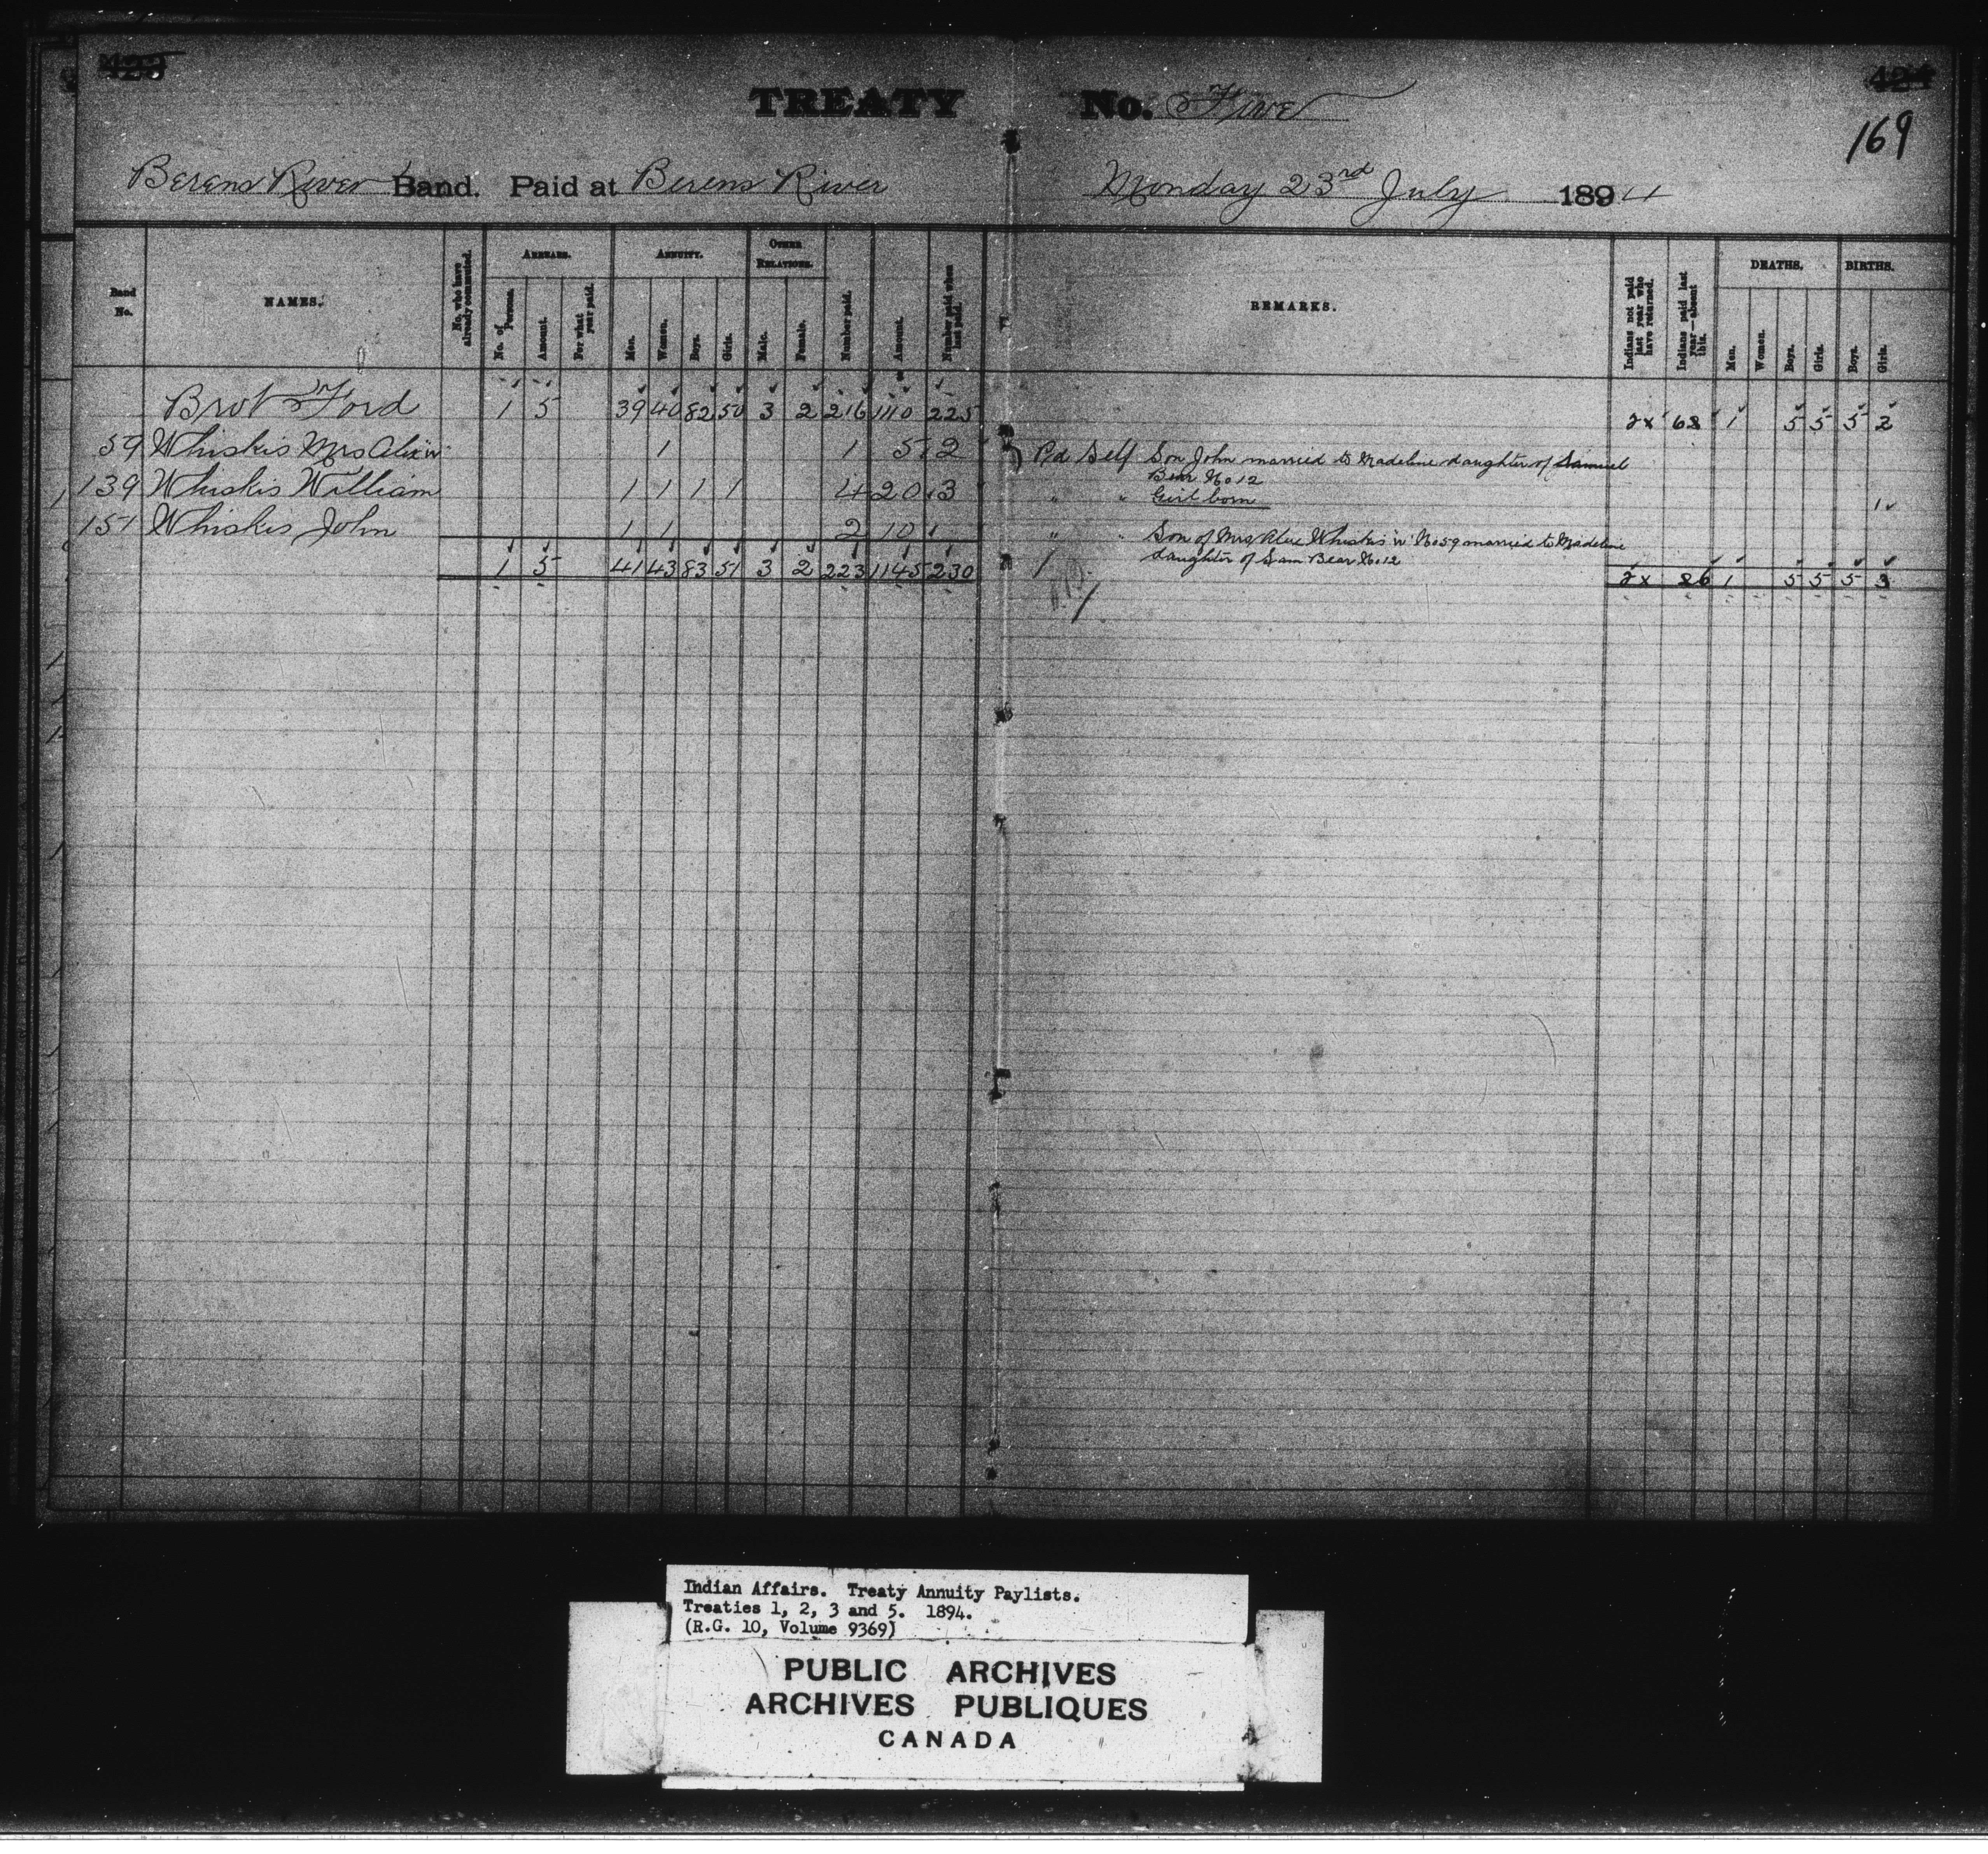 424
169
TREATY No. Five
Berens River Band. Paid at Berens River Monday 23rd July 1894
Band No.
NAMES.
No. who have already commuted.
ARREARS.
No. of Persons.
Amount.
For what year paid.
ANNUITY.
Men.
Women.
Boys.
Girls.
OTHER RELATIONS.
Male.
Female.
Number paid.
Amount.
Number paid when last paid.
REMARKS.
Indians not paid last year who have returned.
Indians paid last year—absent this.
DEATHS.
Men.
Women.
Boys.
Girls.
BIRTHS.
Boys.
Girls.
Brot Ford 1 5 39 40 82 50 3 2 216 1110 225 1 5 5 5 2
59 Whiskis Mrs Alex W 1 1 5 2 Pd Self Son John married to Madeline daughter of Samuel
Bear No 12
139 Whiskis William 1 1 1 1 4 20 3 " " Girl born 1
151 Whiskis John 1 1 2 10 " " Son of Mrs Alex Whiskis W No 59 married to Madeline
daughter of Sam Bear No 12
1 5 41 43 83 51 3 2 223 1145 230 1 5 5 5 3
Indian Affairs. Treaty Annuity Paylists.
Treaties 1, 2, 3 and 5. 1894.
(R.G. 10, Volume 9369)
PUBLIC ARCHIVES
ARCHIVES PUBLIQUES
CANADA